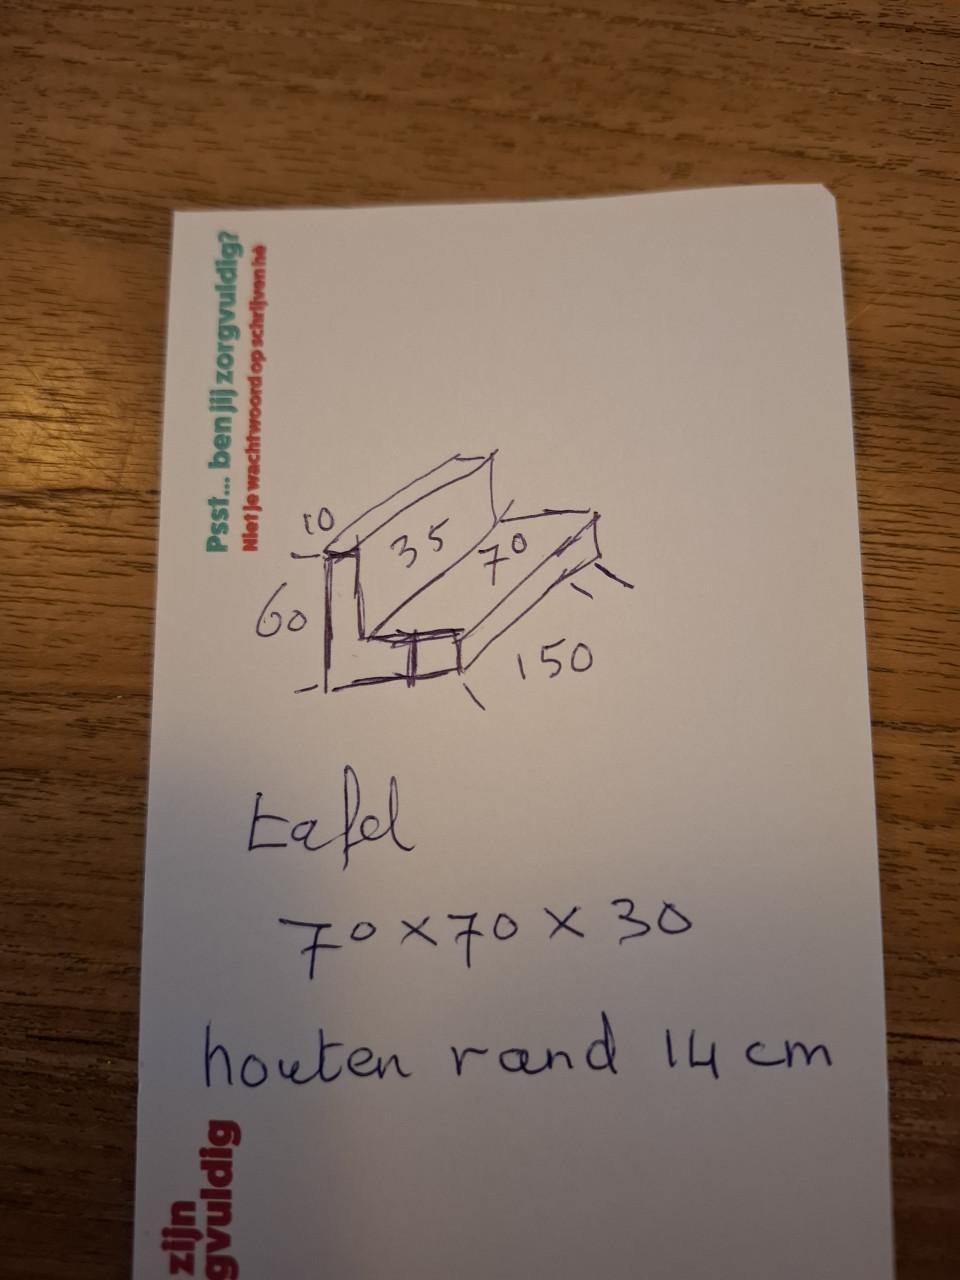 Psst... ben jij zorgvuldig?
Niet je wachtwoord op schrijven hè
10
35
70
60
150
tafel
70 x 70 x 30
houten rand 14 cm
zijn
gvuldig